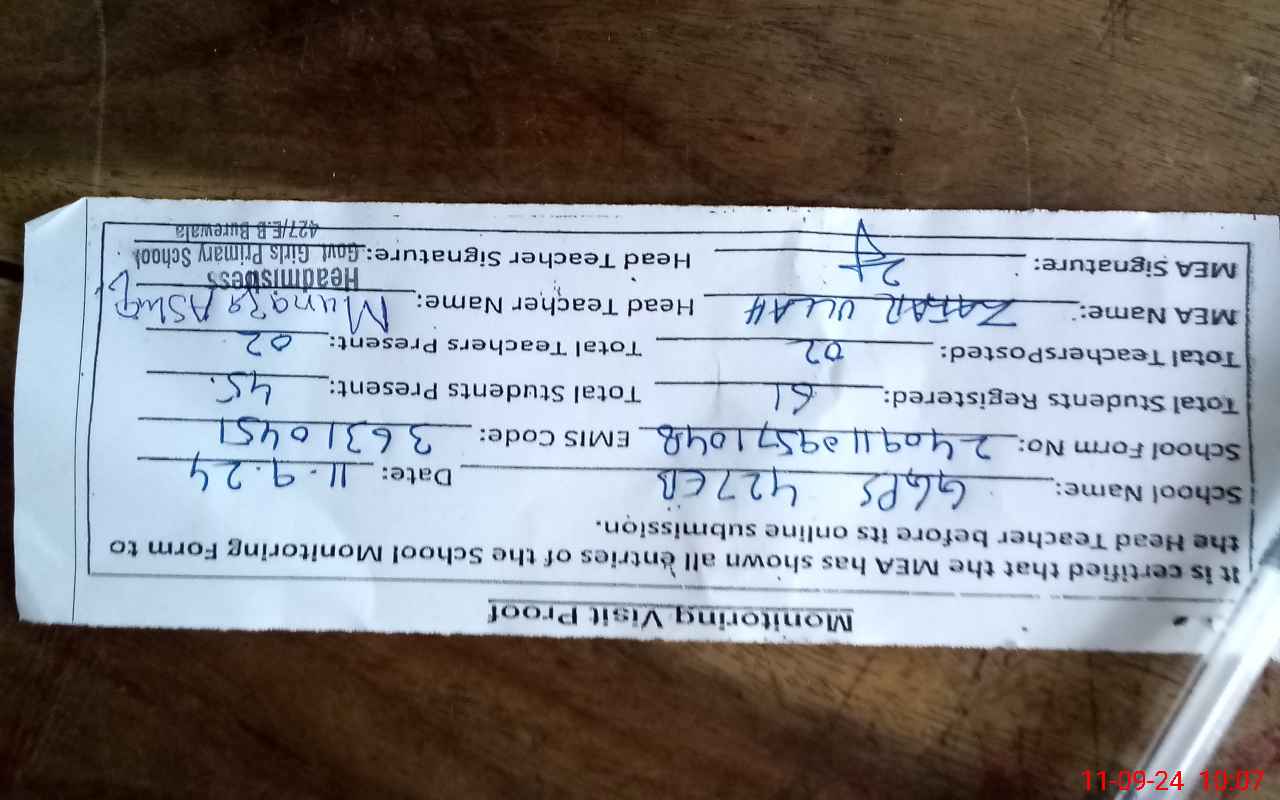 Monitoring Visit Proof
It is certified that the MEA has shown all entries of the School Monitoring Form to
the Head Teacher before its online submission.
School Name: GGPS 427 EB Date: 11-9-24
School Form No: EMIS Code: 36310451
Total Students Registered: 61 Total Students Present: 45
Total TeachersPosted: 02 Total Teachers Present: 02
MEA Name: ZAFAR ULLAH Head Teacher Name: Munaza
MEA Signature: Head Teacher Signature:
Headmistess
Govt. Girls Primary School
427/E.B Burewala
11-09-24 10:07